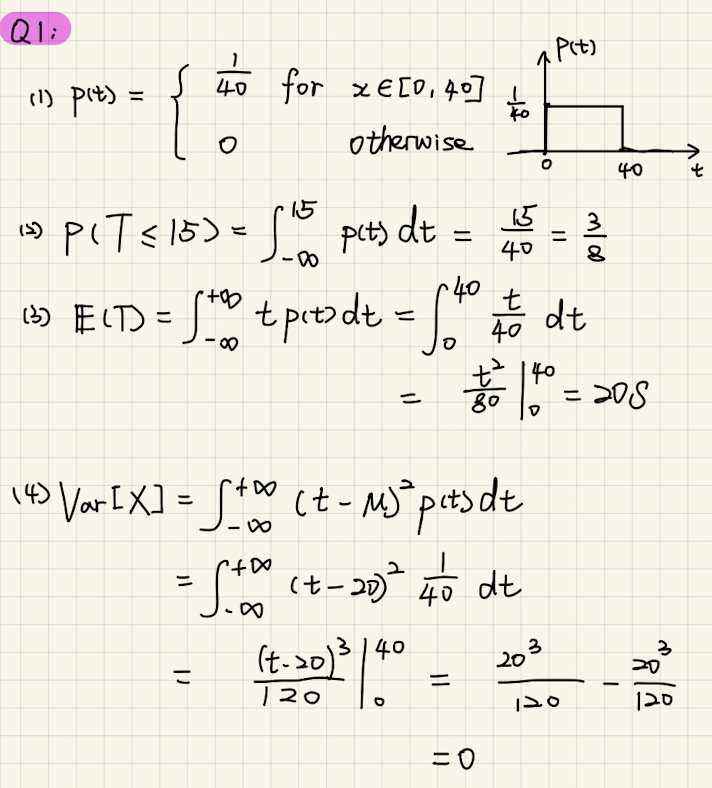 Q1:
(1) p(t) = { 1/40 for x∈[0, 40]
0 otherwise
P(t)
1/40
0 40 t
(2) P(T ≤ 15) = ∫_{-∞}^{15} p(t) dt = 15/40 = 3/8
(3) E(T) = ∫_{-∞}^{+∞} t p(t) dt = ∫_0^{40} t/40 dt
= t²/80 |_0^{40} = 20S
(4) Var[X] = ∫_{-∞}^{+∞} (t - μ)² p(t) dt
= ∫_{-∞}^{+∞} (t - 20)² 1/40 dt
= (t-20)³/120 |_0^{40} = 20³/120 - 20³/120
= 0